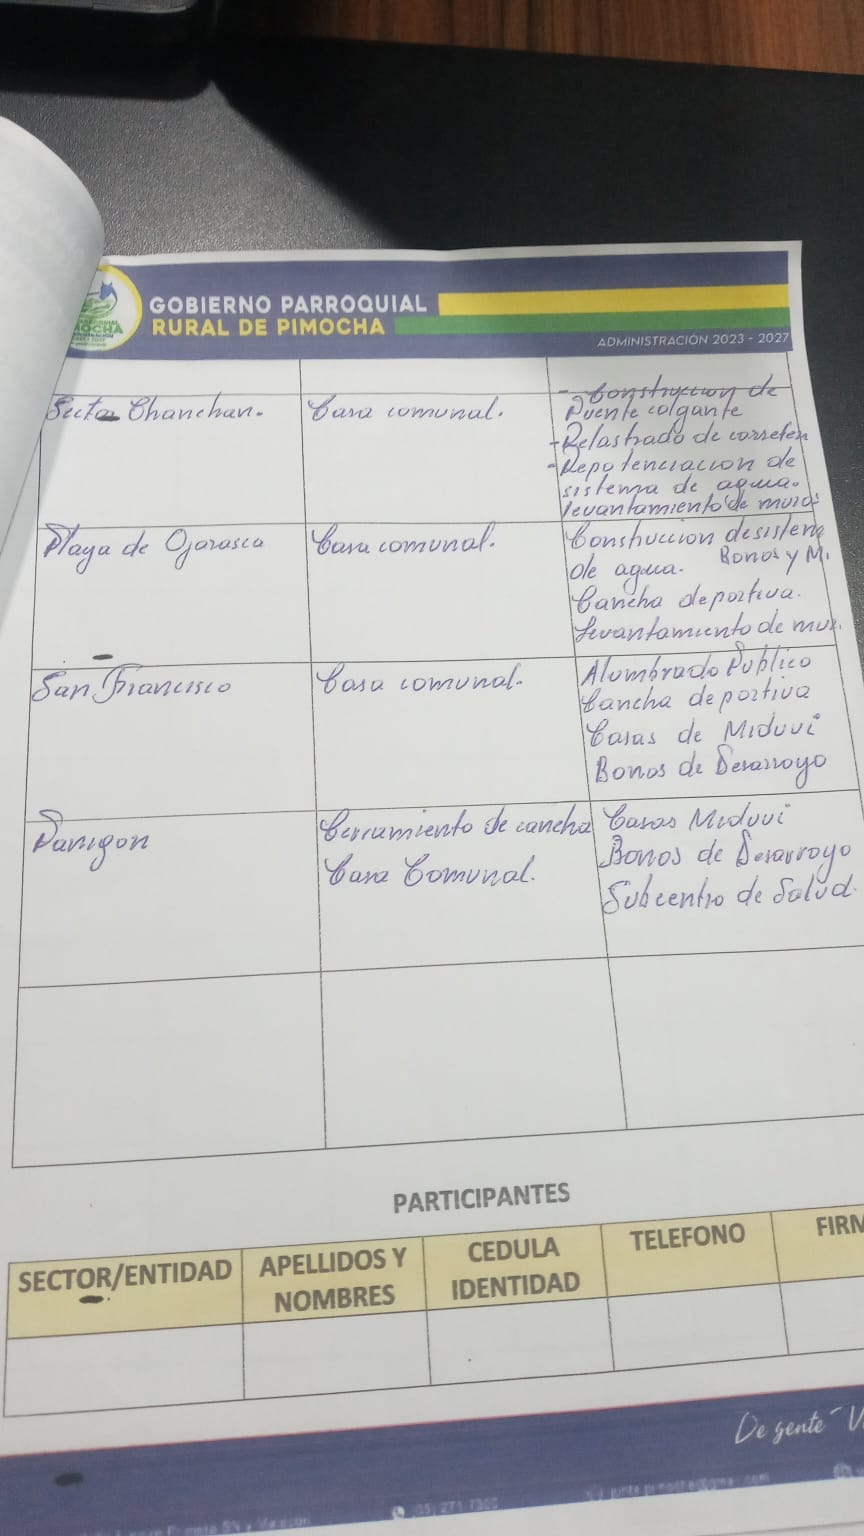 GOBIERNO PARROQUIAL
RURAL DE PIMOCHA
ADMINISTRACIÓN 2023 - 2027
Sector Chanchan.
Casa comunal.
- Construccion de
Puente colgante
- Relastrado de carreten
- Repotenciacion de
sistema de agua.
levantamiento de muros
Playa de Ojarasca
Casa comunal.
Construccion de sistem
de agua. Bonos y M.
Cancha deportiva.
Levantamiento de mur.
San Francisco
Casa comunal.
Alumbrado Publico
Cancha deportiva
Casas de Miduvi
Bonos de Desarroyo
Panigon
Cerramiento de cancha
Casa Comunal.
Casas Miduvi
Bonos de Desarroyo
Subcentro de Salud.
PARTICIPANTES
SECTOR/ENTIDAD
APELLIDOS Y
NOMBRES
CEDULA
IDENTIDAD
TELEFONO
FIRM
De gente